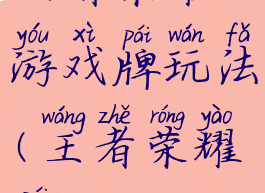 yóu xì pái wán fǎ
游戏牌玩法
wáng zhě róng yào
(王者荣耀